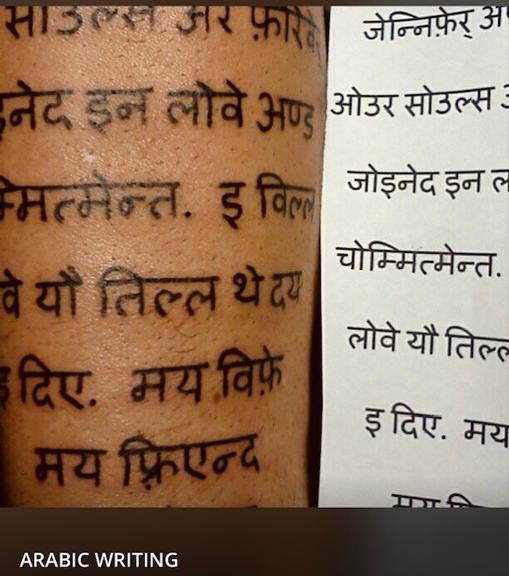 सोउल्स अरे
जेन्निफ़ेर्
इनेद इन लोवे अण्ड
ओउर सोउल्स
म्मित्मेन्त. इ विल्ल
जोइनेद इन
वे यौ तिल्ल थे दय
चोम्मित्मेन्त.
इ दिए. मय विफ़े
लोवे यौ तिल्ल
मय फ़्रिएन्द
इ दिए. मय
ARABIC WRITING